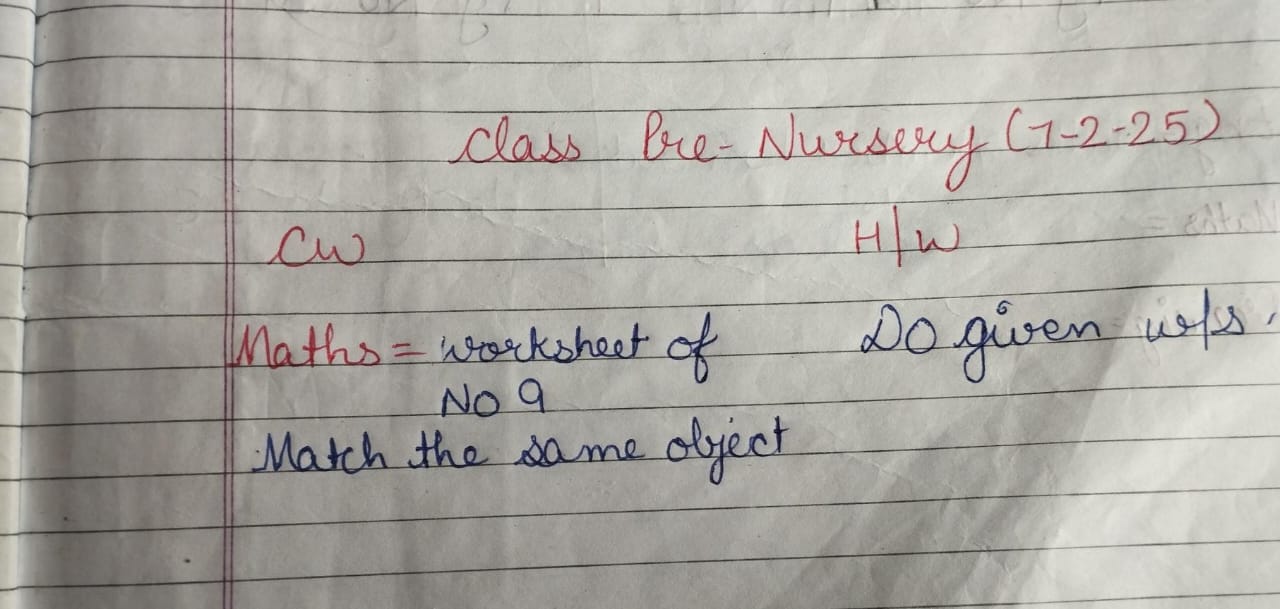 Class Pre-Nursery (7-2-25)
CW H/W
Maths = worksheet of Do given w/s.
No 9
Match the same object